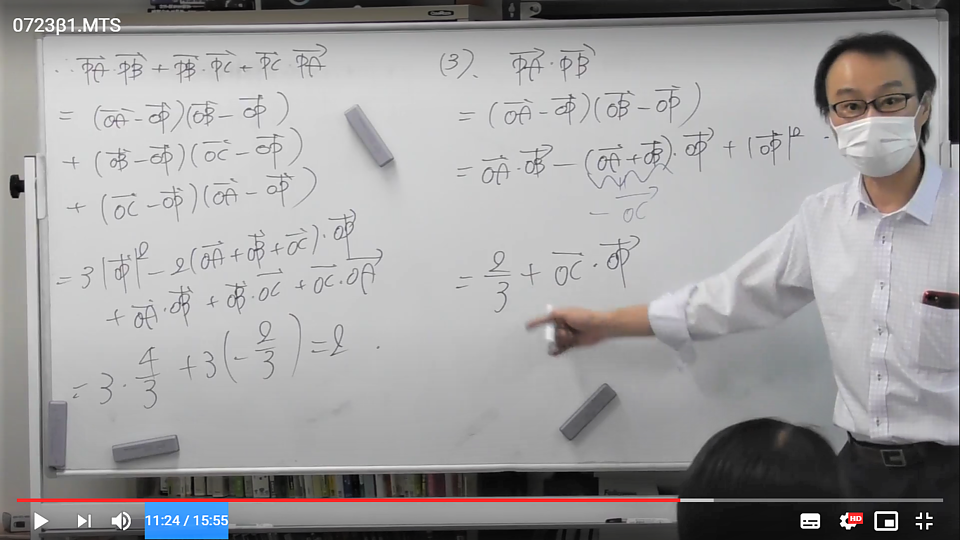 0723β1.MTS
∴ PA⃗・PB⃗ + PB⃗・PC⃗ + PC⃗・PA⃗
= (OA⃗ − OP⃗)(OB⃗ − OP⃗)
+ (OB⃗ − OP⃗)(OC⃗ − OP⃗)
+ (OC⃗ − OP⃗)(OA⃗ − OP⃗)
= 3|OP⃗|² − 2(OA⃗ + OB⃗ + OC⃗)・OP⃗
+ OA⃗・OB⃗ + OB⃗・OC⃗ + OC⃗・OA⃗
= 3・4/3 + 3(−2/3) = 2.
(3). PA⃗・PB⃗
= (OA⃗ − OP⃗)(OB⃗ − OP⃗)
= OA⃗・OB⃗ − (OA⃗ + OB⃗)・OP⃗ + |OP⃗|²
− OC⃗
= 2/3 + OC⃗・OP⃗
11:24 / 15:55
HD